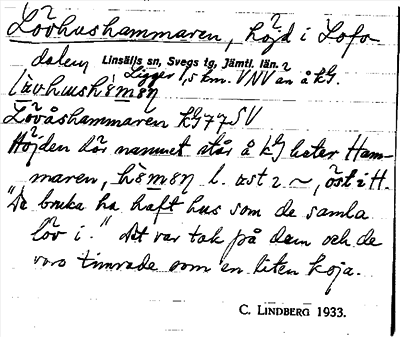 Lövhushammaren, höjd i Lofs-
dalen Linsälls sn, Svegs tg, Jämtl. län.
Ligger 1,5 km. VNV an å kG.
Lövåshammaren kG77SV
Höjden där namnet står å kG heter Ham-
maren, l. öst i H.
"De bruka ha haft hus som de samla
löv i." Det var tak på dem och de
voro timrade som en liten koja.
C. LINDBERG 1933.